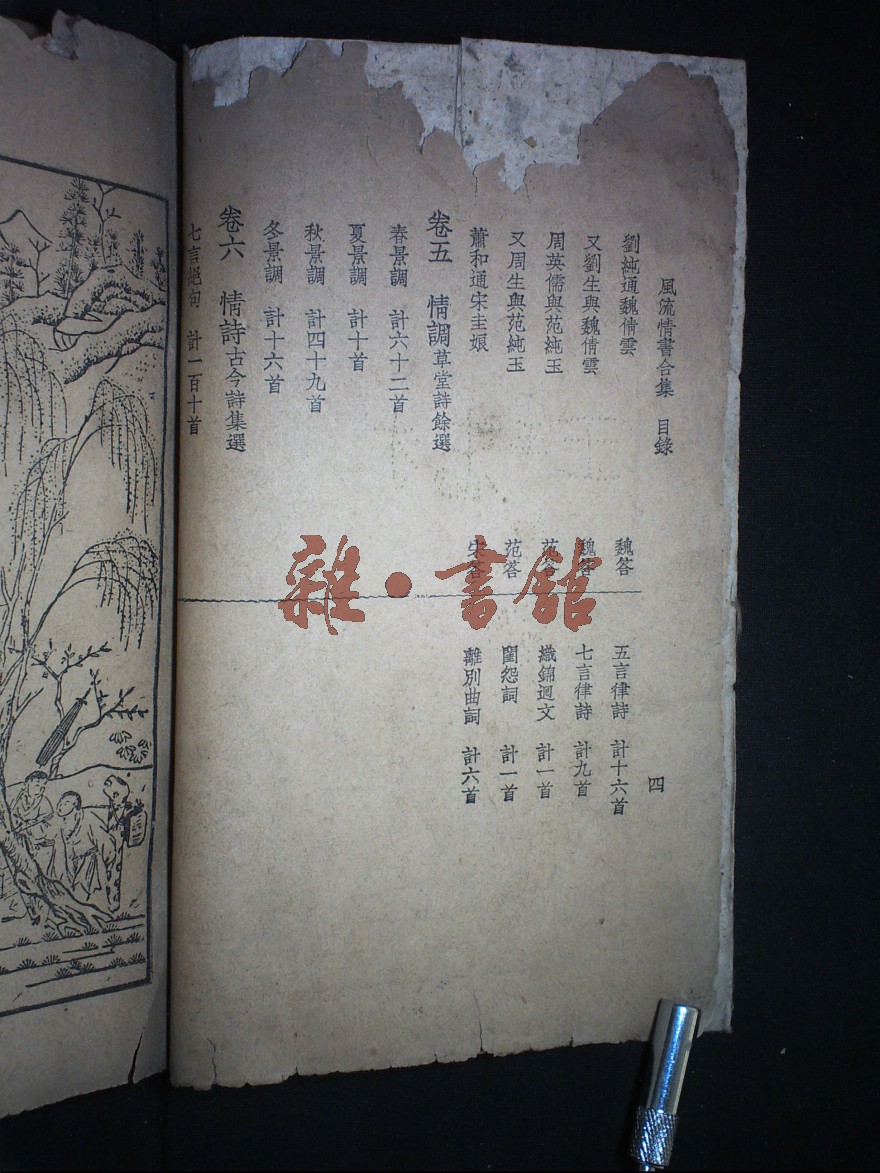 風流情書合集 目錄
四
劉純通魏倩雲
魏答
又劉生與魏倩雲
魏答
周英儒與范純玉
范答
又周生與范純玉
范答
蕭和通宋圭娘
宋答
卷五 情調草堂詩餘選
春景調 計六十二首
夏景調 計十首
秋景調 計四十九首
冬景調 計十六首
卷六 情詩古今詩集選
七言絕句 計一百十首
五言律詩 計十六首
七言律詩 計九首
織錦迴文 計一首
閨怨詞 計一首
離別曲詞 計六首
雜·書館